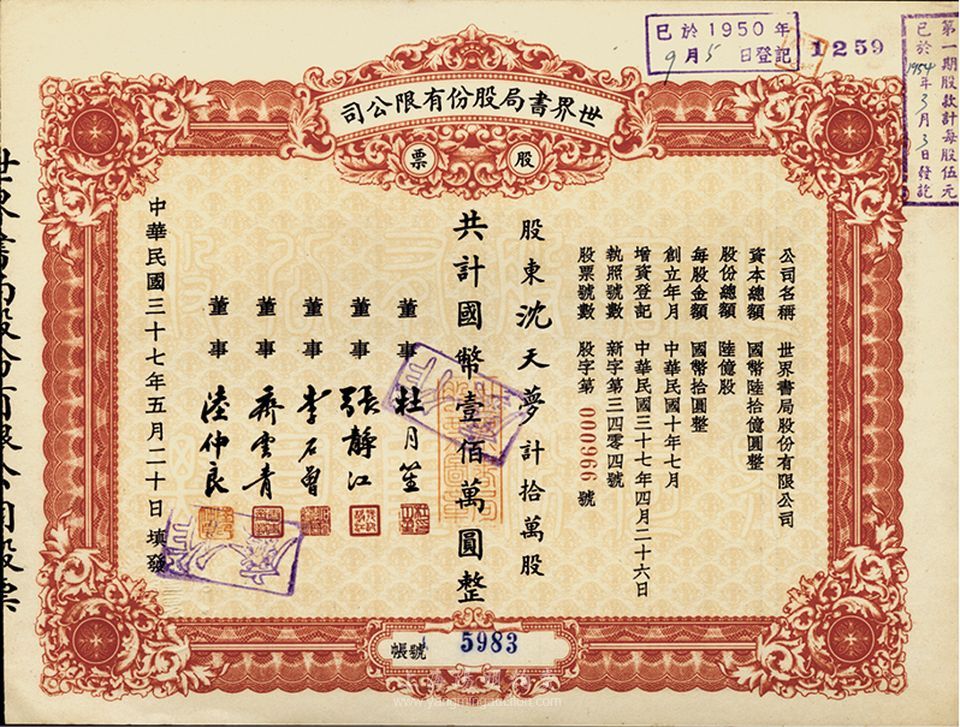 已於1950年
9月5日登記
1259
第一期股款計每股伍元
已於1954年3月3日發訖
世界書局股份有限公司
股票
公司名稱 世界書局股份有限公司
資本總額 國幣陸拾億圓整
股份總額 陸億股
每股金額 國幣拾圓整
創立年月 中華民國十年七月
增資登記 中華民國三十七年四月二十六日
執照號數 新字第三四零四號
股票號數 股字第000966號
股東沈天夢計拾萬股
共計國幣壹佰萬圓整
董事 杜月笙
董事 張靜江
董事 李石曾
董事 齊雲青
董事 陸仲良
中華民國三十七年五月二十日填發
世界書局股份有限公司股票
帳號 5983
www.yangmingauction.com